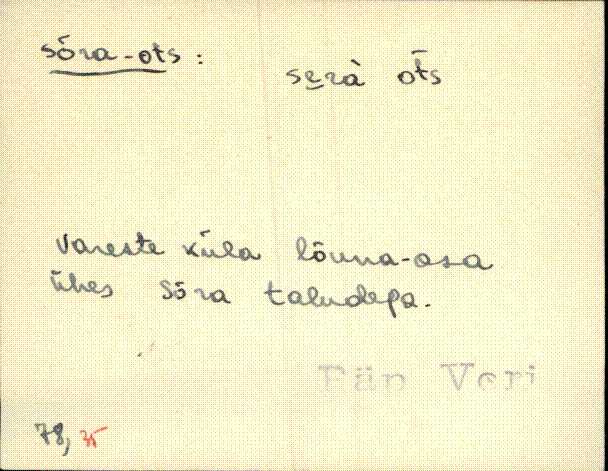 sõra-ots:
se̮rà ōt́s
Vareste küla lõuna-osa
ühes Sõra taludega.
Räp Veri
78, 35